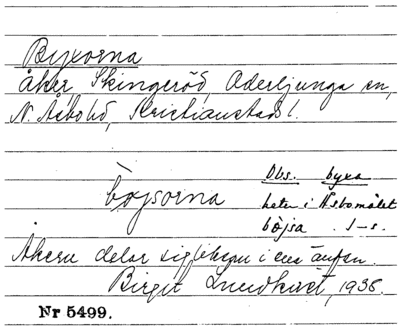 Byxorna
åker, Skingeröd, Oderljunga sn,
N. Åsbo hd, Kristianstads l.
böjsorna
Obs. byxa
heter i Åsbomålet
böjsa. 1-s.
Åkern delar sig i en
Birgit Lundkvist, 1935.
Nr 5499.